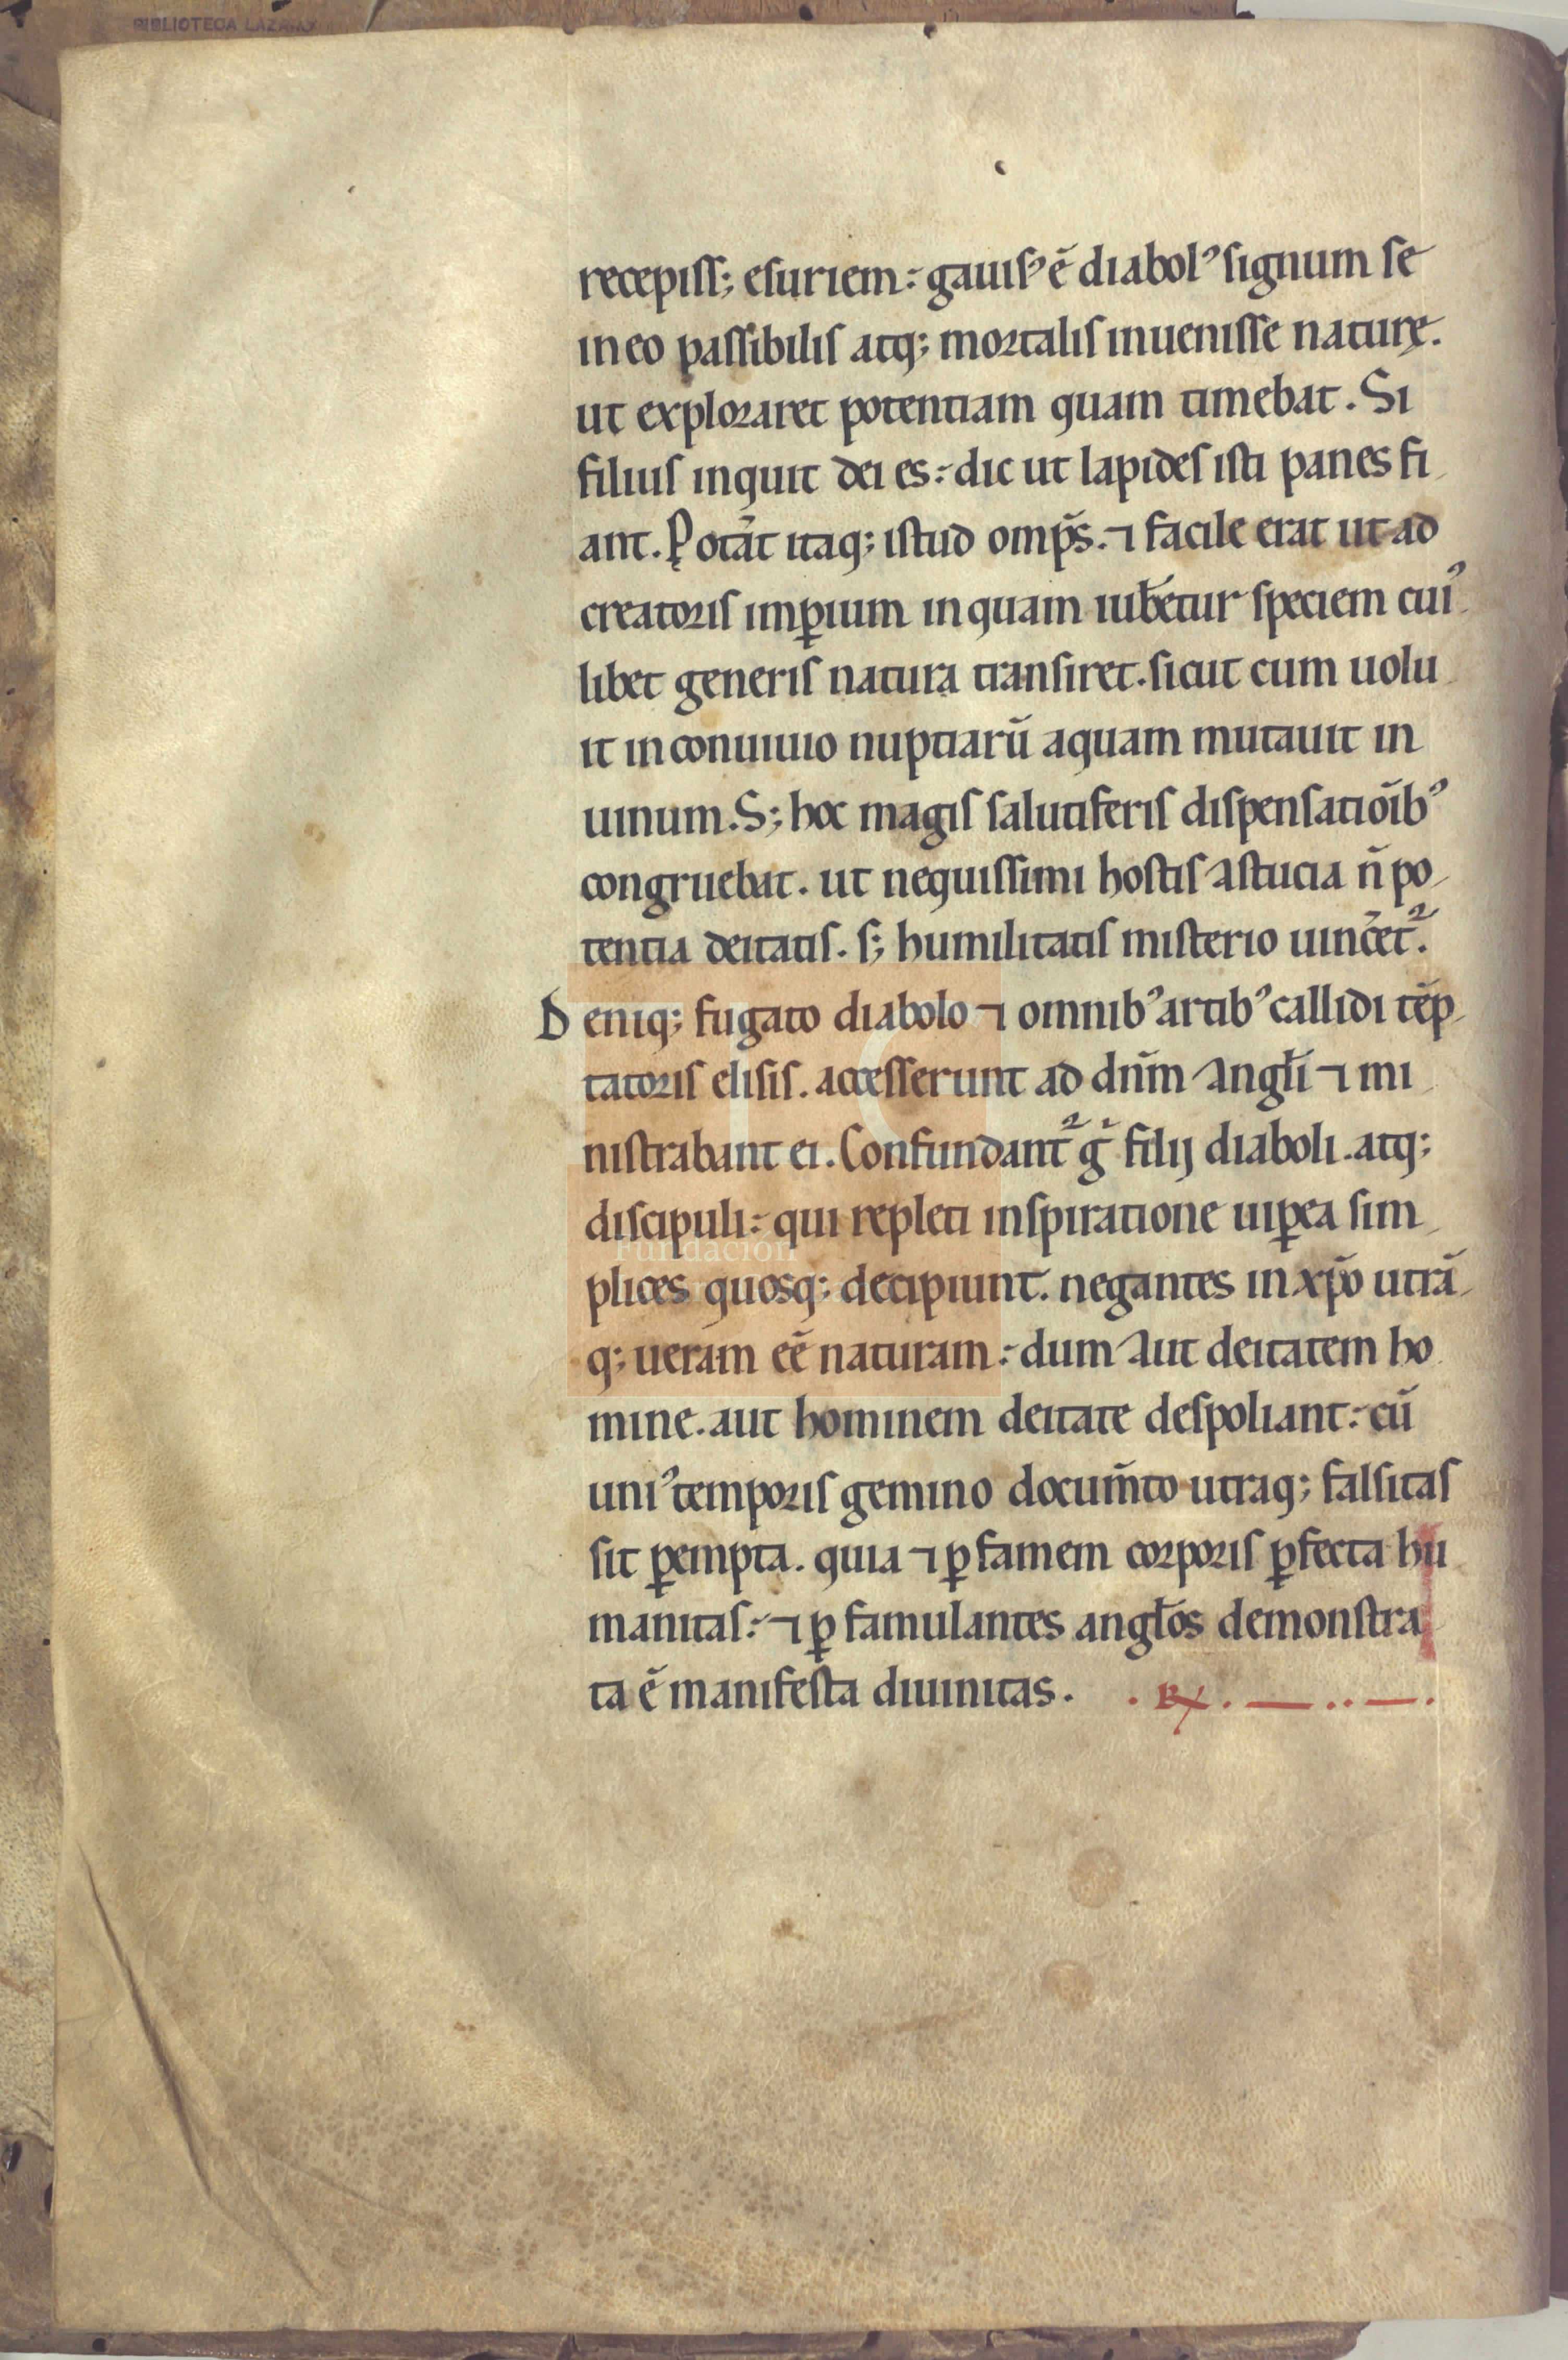 BIBLIOTECA LAZARO
recepiss; esuriem: gauisꝰ ē diabolꝰ signum se
in eo passibilis atq; mortalis inuenisse naturę.
ut exploraret potentiam quam timebat. Si
filius inquit dei es: dic ut lapides isti panes fi
ant. Pot̄at itaq; istud omp̄s. ⁊ facile erat ut ad
creatoris imꝑium in quam iub̄etur speciem cuiꝰ
libet generis natura transiret. sicut cum uolu
it in conuiuio nuptiarū aquam mutauit in
uinum. S; hoc magis salutiferis dispensatiōibꝰ
congruebat. ut nequissimi hostis astucia n̄ po
tentia deitatis. s; humilitatis misterio uinc̄et᷑.
Deniq; fugato diabolo ⁊ omnibꝰ artibꝰ callidi tēp
tatoris elisis. accesserunt ad dn̄m angl̄i ⁊ mi
nistrabant ei. Confundant᷑ g̊ filij diaboli. atq;
discipuli: qui repleti inspiratione uiꝑea sim
plices quosq; decipiunt. negantes in xp̄o utrā
q; ueram eē naturam: dum aut deitatem ho
mine. aut hominem deitate despoliant: cū
uniꝰ temporis gemino docum̄to utraq; falsitas
sit ꝑempta. quia ⁊ ꝑ famem corporis ꝑfecta hu
manitas: ⁊ ꝑ famulantes angl̄os demonstra
ta ē manifesta diuinitas. . ℞. — .. — .
Fundación